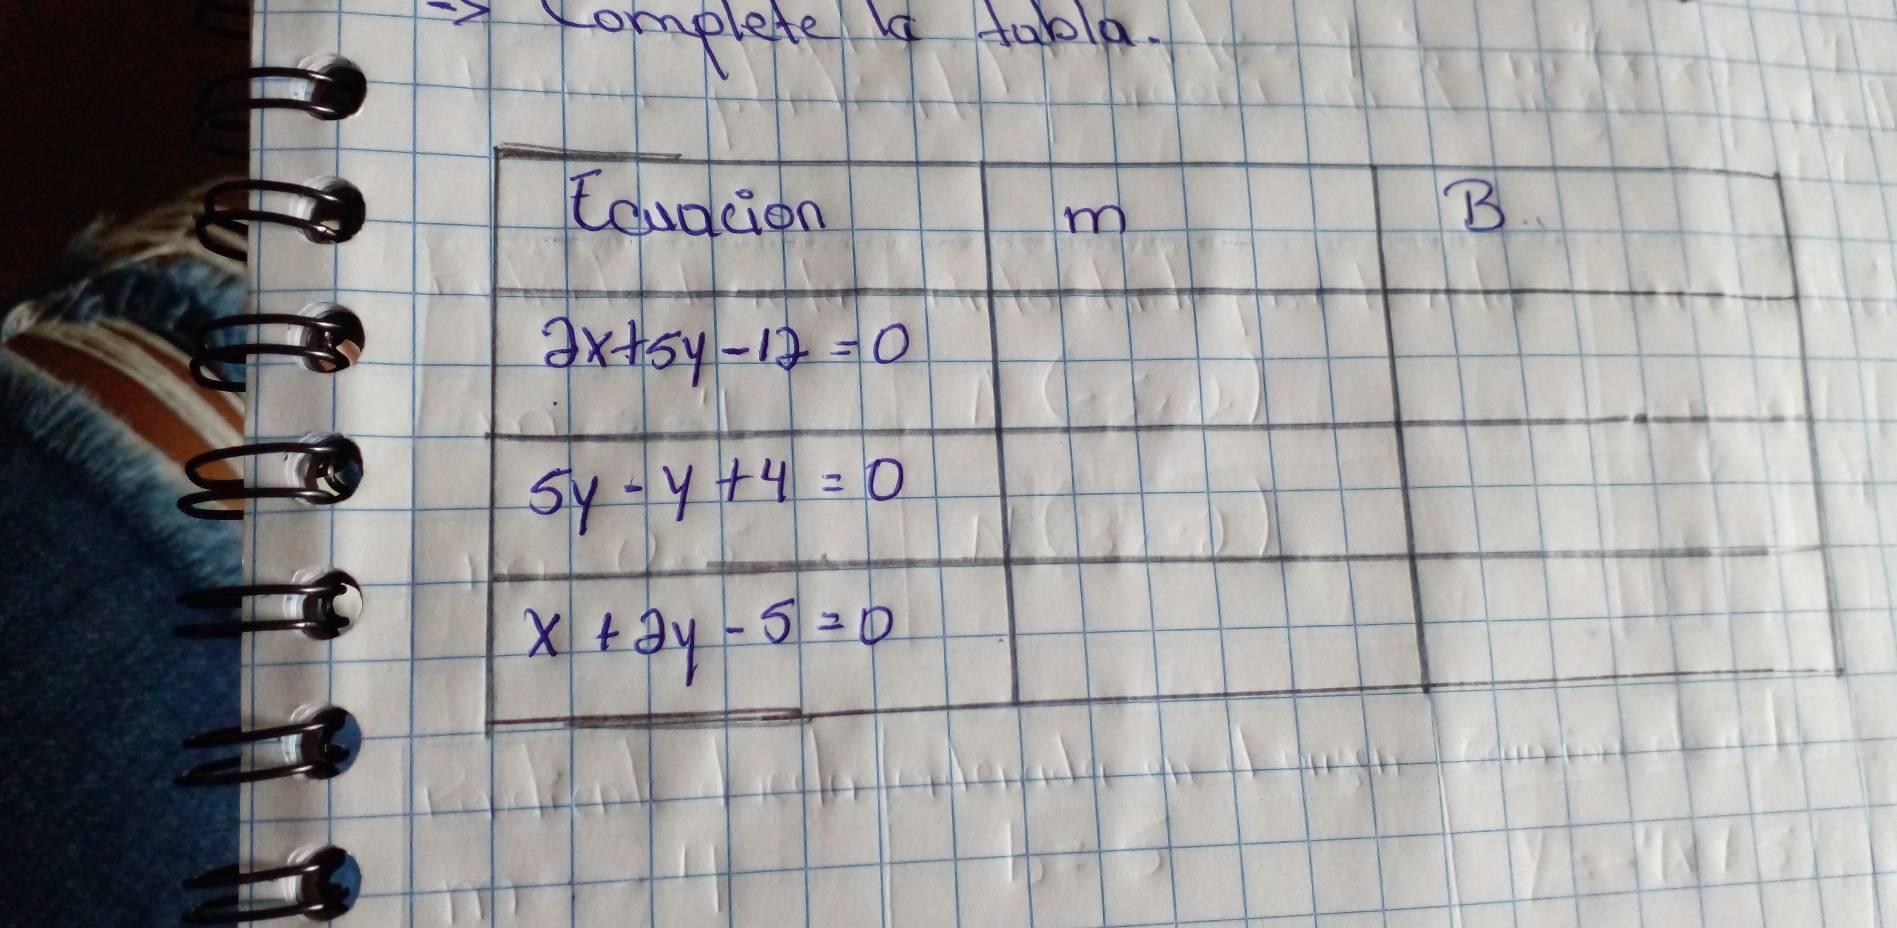 -> Complete la tabla.
Ecuacion m B
2x+5y-12=0
5y-y+4=0
x+2y-5=0